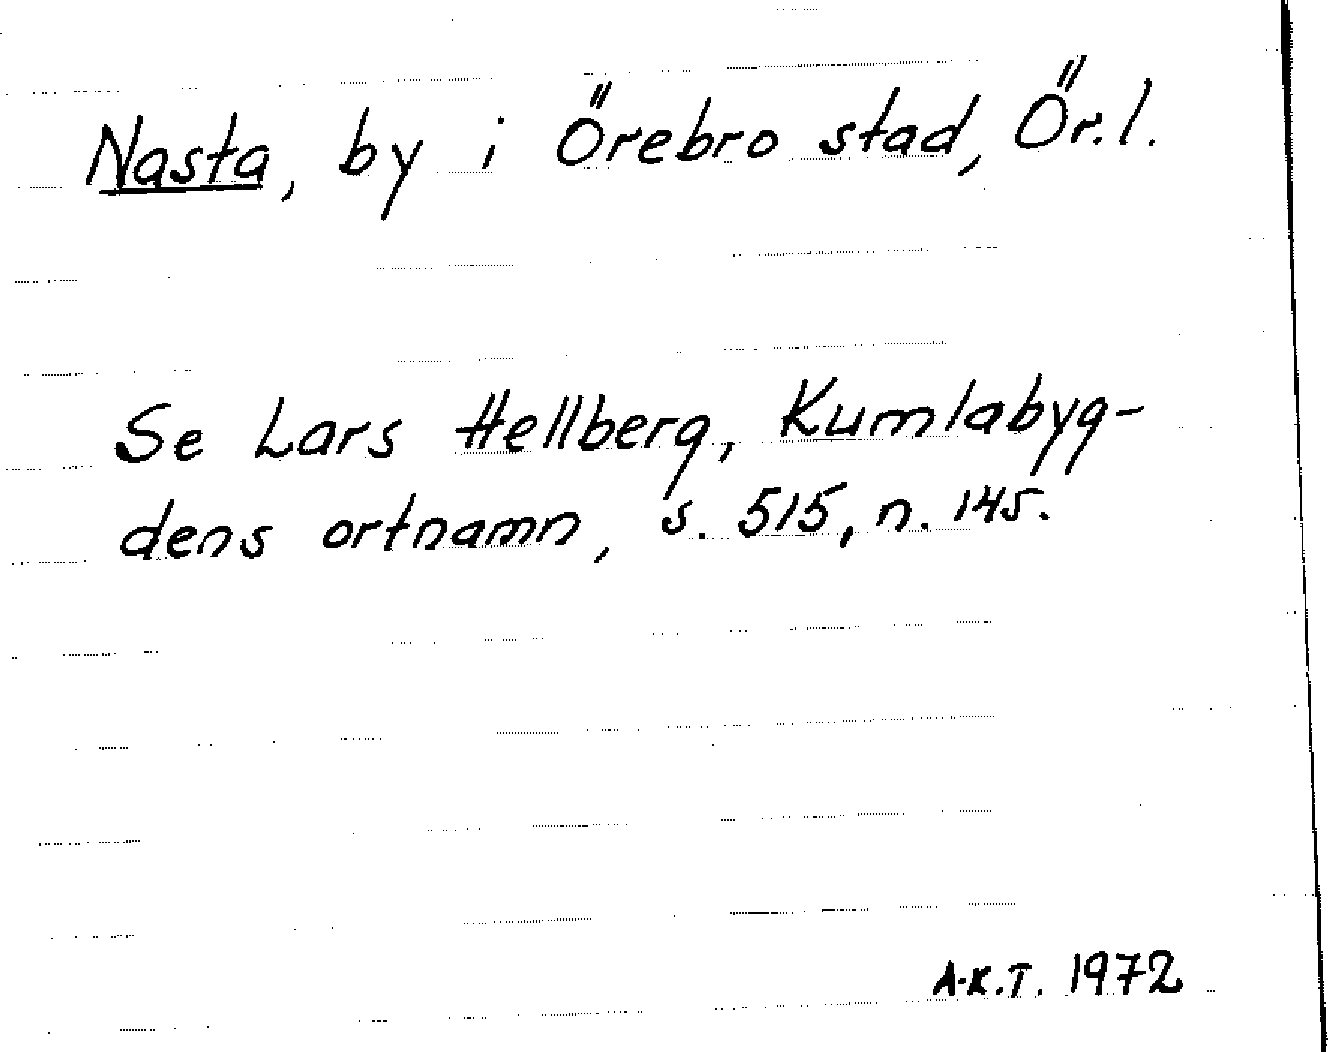 Nasta, by i Örebro stad, Ör.l.
Se Lars Hellberg, Kumlabyg-
dens ortnamn, s. 515, n. 145.
A-K.T. 1972